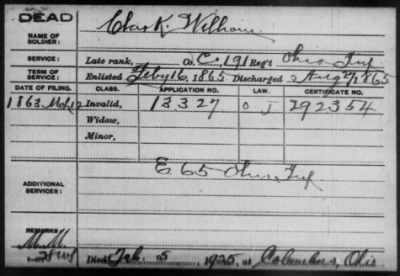 DEAD
NAME OF SOLDIER: Chas K. Wilhoun
SERVICE: Late rank, Co. C, 191 Reg't Ohio Inf
TERM OF SERVICE: Enlisted Feby 16, 1865 Discharged Aug 27, 1865
DATE OF FILING. CLASS. APPLICATION NO. LAW. CERTIFICATE NO.
Invalid, 13327 292354
Widow,
Minor,
ADDITIONAL SERVICES: E 65 Ohio Inf
REMARKS:
Died Feb. 5, 1925, at Columbus, Ohio